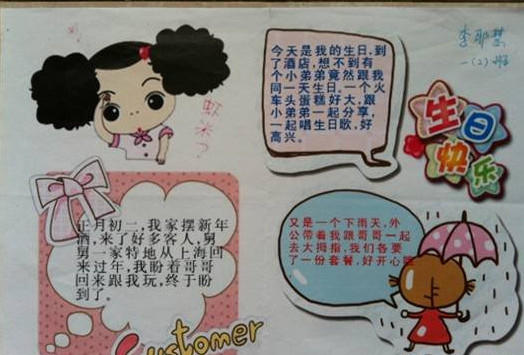 今天是我的生日，到
了酒店，想不到有
个小弟弟竟然跟我
同一天生日。一个火
车头蛋糕好大，跟
小弟弟一起分享，
一起唱生日歌，好
高兴。
一(2)班
生日
快乐
正月初二，我家摆新年
酒，来了好多客人，舅
舅一家特地从上海回
来过年，我盼着哥哥
回来跟我玩，终于盼
到了。
又是一个下雨天，外
公带着我跟哥哥一起
去大拇指，我们各要
了一份套餐，好开心
Customer